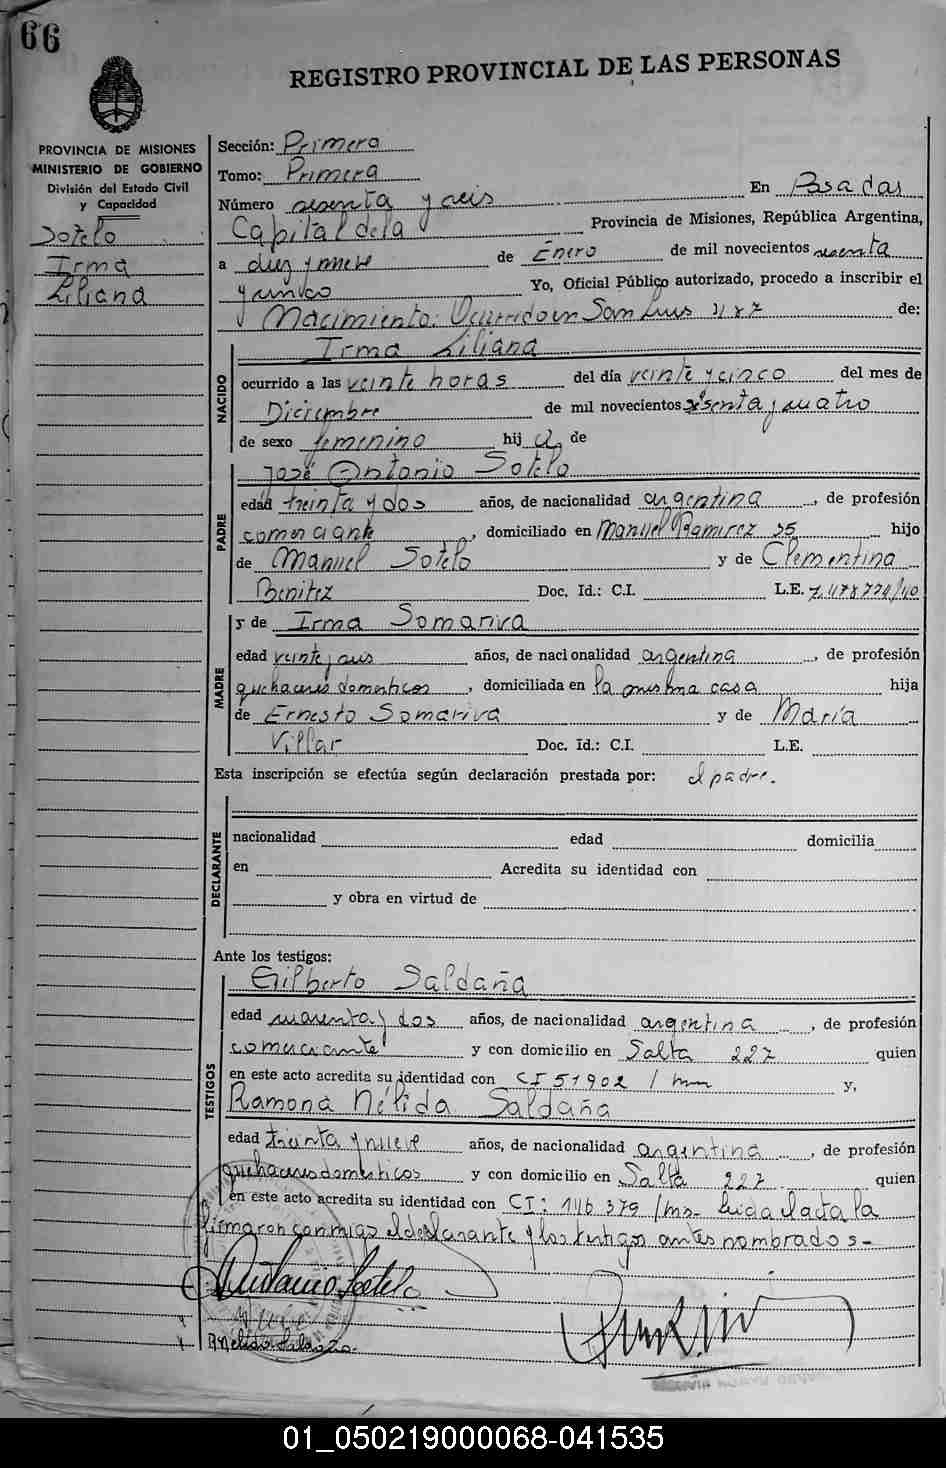 66
REGISTRO PROVINCIAL DE LAS PERSONAS
PROVINCIA DE MISIONES
MINISTERIO DE GOBIERNO
División del Estado Civil
y Capacidad
Sotelo
Irma
Liliana
Sección: Primera
Tomo: Primera
Número sesenta y seis En Posadas
Capital de la Provincia de Misiones, República Argentina,
a diez y nueve de Enero de mil novecientos sesenta
y cinco Yo, Oficial Público autorizado, procedo a inscribir el
Nacimiento: Ocurrido en San Luis 3187 de:
Irma Liliana
NACIDO
ocurrido a las veinte horas del día veinte y cinco del mes de
Diciembre de mil novecientos sesenta y cuatro
de sexo femenino hij a de
José Antonio Sotelo
PADRE
edad treinta y dos años, de nacionalidad argentina, de profesión
comerciante, domiciliado en Manuel Ramirez 35 hijo
de Manuel Sotelo y de Clementina
Benitez Doc. Id.: C.I. L.E. 7.478.774/40
y de Irma Somariva
MADRE
edad veinte y seis años, de nacionalidad argentina, de profesión
quehaceres domesticos, domiciliada en la misma casa hija
de Ernesto Somariva y de María
Villar Doc. Id.: C.I. L.E.
Esta inscripción se efectúa según declaración prestada por: el padre.
DECLARANTE
nacionalidad edad domicilia
en Acredita su identidad con
y obra en virtud de
Ante los testigos:
Gilberto Saldaña
TESTIGOS
edad cuarenta y dos años, de nacionalidad argentina, de profesión
comerciante y con domicilio en Salta 227 quien
en este acto acredita su identidad con CI 51902 / mn y,
Ramona Nélida Saldaña
edad treinta y nueve años, de nacionalidad argentina, de profesión
quehaceres domesticos y con domicilio en Salta 227 quien
en este acto acredita su identidad con CI: 146 379 /ms- Leida el acta la
firmaron conmigo el declarante y los testigos antes nombrados-
R Nelida Saldaña.
01_050219000068-041535